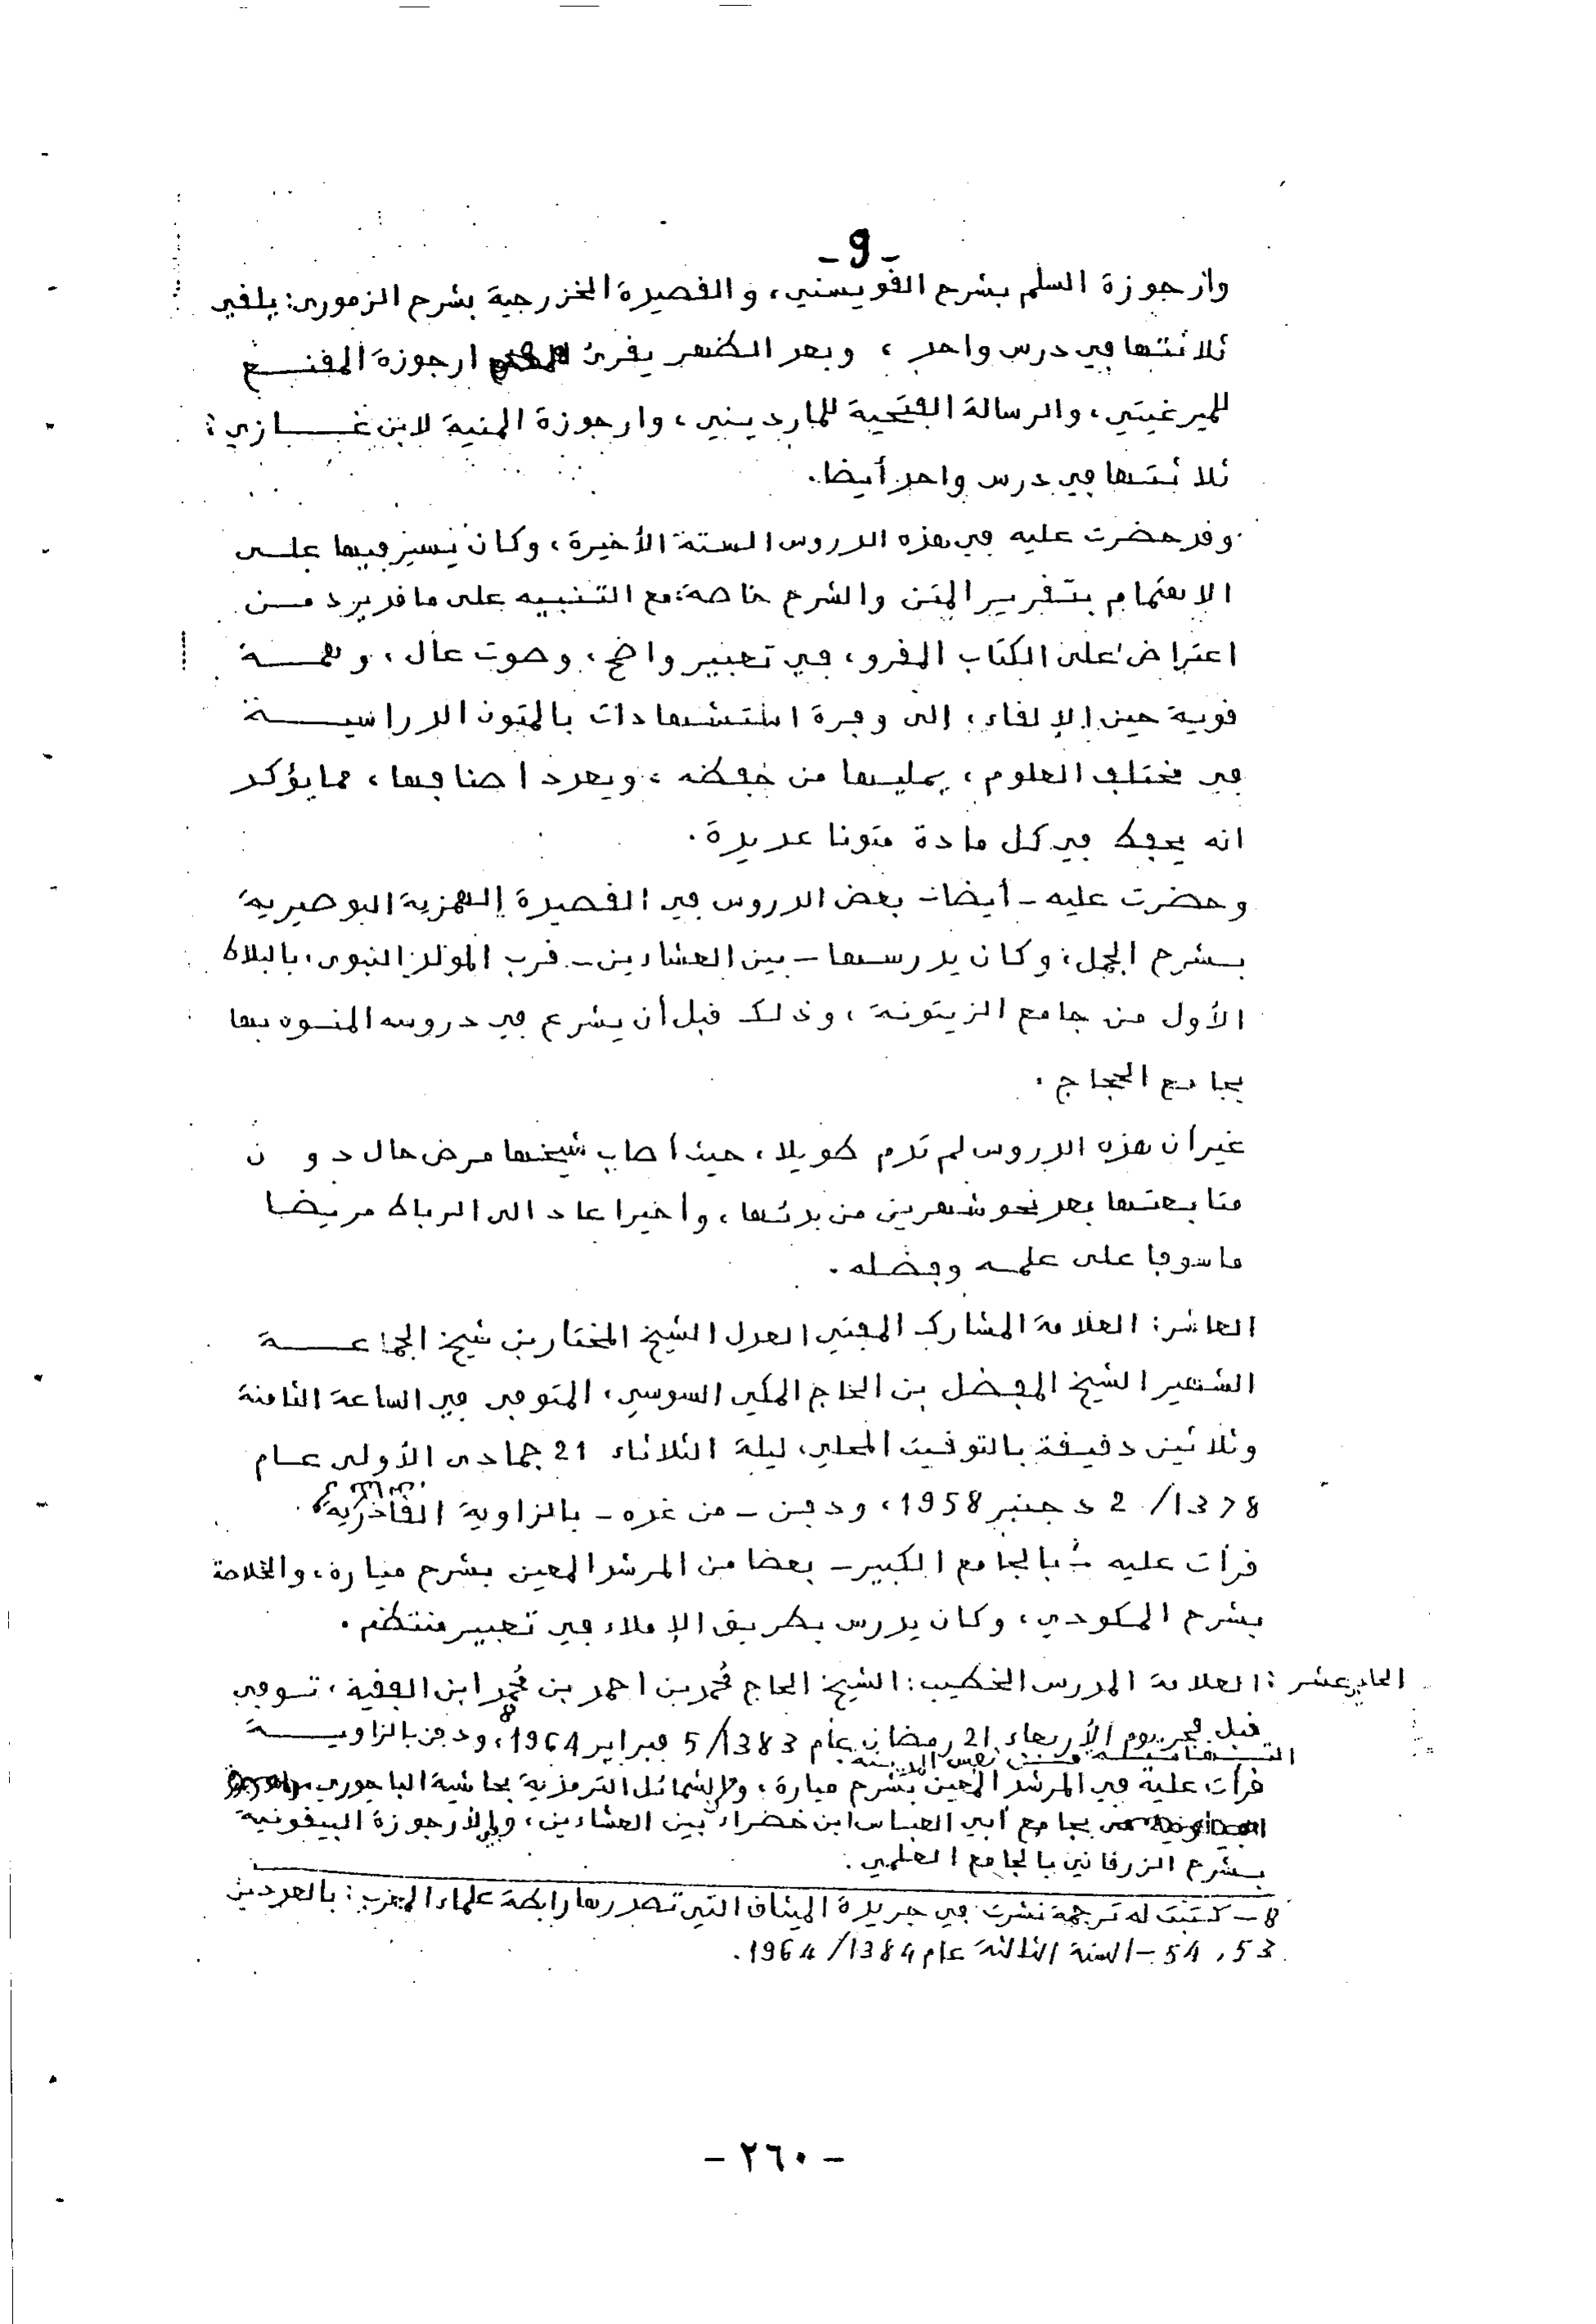 -9-
وارجوزة السلم بشرح القويسني، والقصيدة الخزرجية بشرح الزموري: يلقي
ثلاثتها في درس واحد، وبعد الظهر يقرئ ارجوزة المقنع
للميرغيتي، والرسالة الفتحية للمارديني، وارجوزة المنية لابن غازي:
ثلاثتها في درس واحد أيضا.
وقد حضرت عليه في هذه الدروس الستة الأخيرة، وكان يسير فيها على
الاهتمام بتقرير المتن والشرح خاصة، مع التنبيه على ما قد يرد من
اعتراض على الكتاب المقرو، في تعبير واضح، وصوت عال، وهمة
قوية حين الإلقاء، الى وفرة استشهادات بالمتون الدراسية
في مختلف العلوم، يمليها من حفظه، ويعدد اصنافها، مما يؤكد
انه يحفظ في كل مادة متونا عديدة.
وحضرت عليه - أيضا - بعض الدروس في القصيدة الهمزية البوصيرية
بشرح الجمل، وكان يدرسها - بين العشاءين - قرب المولد النبوي، بالبلاط
الأول من جامع الزيتونة، وذلك قبل أن يشرع في دروسه المنوه بها
بجامع الحجاج.
غير أن هذه الدروس لم تدم طويلا، حيث أصاب شيخها مرض حال دون
متابعتها بعد نحو شهرين من بدئها، وأخيرا عاد الى الرباط مريضا
ماسوفا على علمه وفضله.
العاشر: العلامة المشارك المفتي العدل الشيخ المختار بن شيخ الجماعة
الشهير الشيخ المفضل بن الحاج المكي السوسي، المتوفى في الساعة الثامنة
وثلاثين دقيقة بالتوقيت المحلي، ليلة الثلاثاء 21 جمادى الأولى عام
1378/ 2 دجنبر 1958، ودفن - من غده - بالزاوية القادرية
قرأت عليه - بالجامع الكبير - بعضا من المرشد المعين بشرح ميارة، والخلاصة
بشرح المكودي، وكان يدرس بطريق الإملاء في تعبير منتظم.
الحادي عشر: العلامة المدرس الخطيب: الشيخ الحاج محمد بن احمد بن محمد ابن الفقية، توفي
قبل فجر يوم الأربعاء 21 رمضان عام 1383/5 فبراير 1964⁸، ودفن بالزاوية
التهامية من نفس المدينة.
قرأت عليه في المرشد المعين بشرح ميارة، والشمائل الترمذية بحاشية الباجوري
بجامع أبي العباس ابن خضراء بين العشاءين، والأرجوزة البيقونية
بشرح الزرقاني بالجامع العلمي.
8 - كتبت له ترجمة نشرت في جريدة الميثاق التي تصدرها رابطة علماء المغرب: بالعددين
53، 54 - السنة الثالثة عام 1384/1964.
- ٢٦٠ -